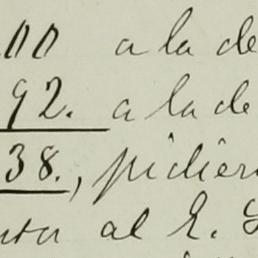 .00 a la de
92. a la de
38., pidier
al E.